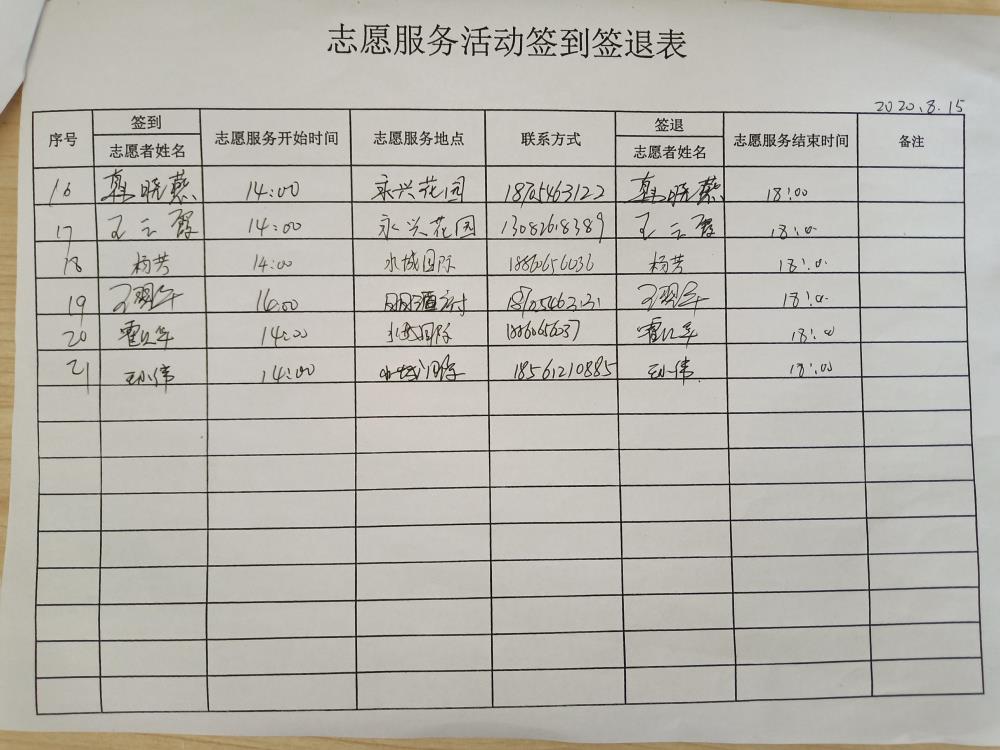 志愿服务活动签到签退表
2020.8.15
序号 签到 志愿者姓名 志愿服务开始时间 志愿服务地点 联系方式 签退 志愿者姓名 志愿服务结束时间 备注
16 韩晓燕 14:00 永兴花园 18705463122 韩晓燕 18:00
17 王云霞 14:00 永兴花园 13082618389 王云霞 18:00
18 杨芳 14:00 水城国际 18860656036 杨芳 18:00
19 14:00 18705463131 18:00
20 14:00 水城国际 18860656037 18:00
21 伟 14:00 水城国际 18561210885 伟 18:00